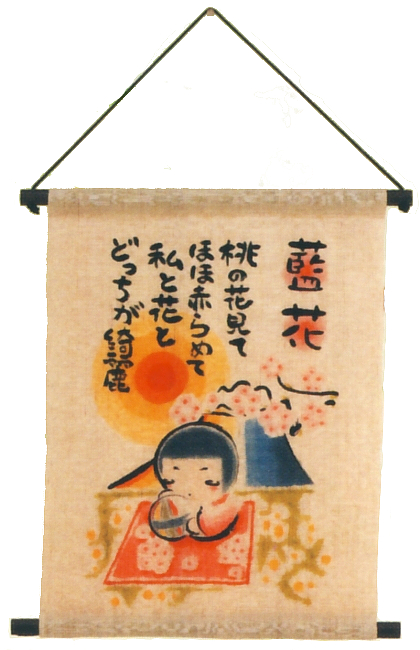 藍花
桃の花見て
ほほ赤らめて
私と花と
どっちが綺麗